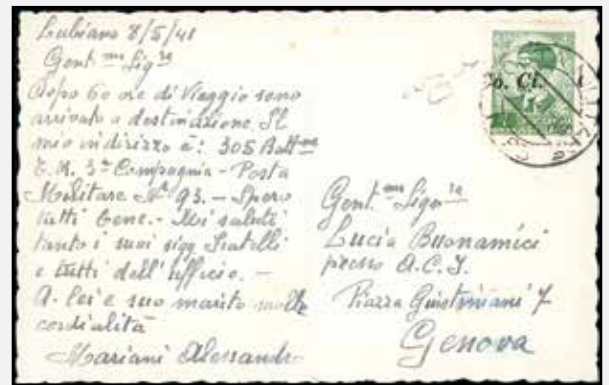 Lubiana 8/5/41
Gent.ma Sig.ra
Dopo 60 ore di Viaggio sono
arrivato a destinazione. Il
mio indirizzo è: 305 Batt.ne
T.M. 3ª Compagnia - Posta
Militare Nº 93. - Spero
tutti bene. - Mi saluti
tanto i suoi sigg Fratelli
e tutti dell'ufficio. -
A. Lei e suo marito molte
cordialità
Mariani Alessandro
Co. Ci.
Gent.ma Sign.ra
Lucia Buonamici
presso A.C.I.
Piazza Giustiniani 7
Genova